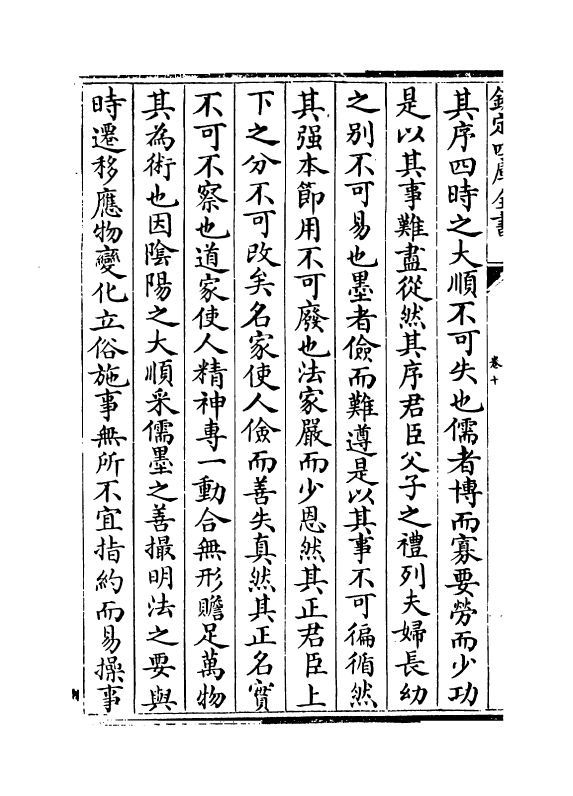 欽定四庫全書
卷十
其序四時之大順不可失也儒者博而寡要勞而少功
是以其事難盡從然其序君臣父子之禮列夫婦長幼
之别不可易也墨者儉而難遵是以其事不可徧循然
其强本節用不可廢也法家嚴而少恩然其正君臣上
下之分不可改矣名家使人儉而善失真然其正名實
不可不察也道家使人精神專一動合無形贍足萬物
其為術也因陰陽之大順采儒墨之善撮明法之要與
時遷移應物變化立俗施事無所不宜指約而易操事